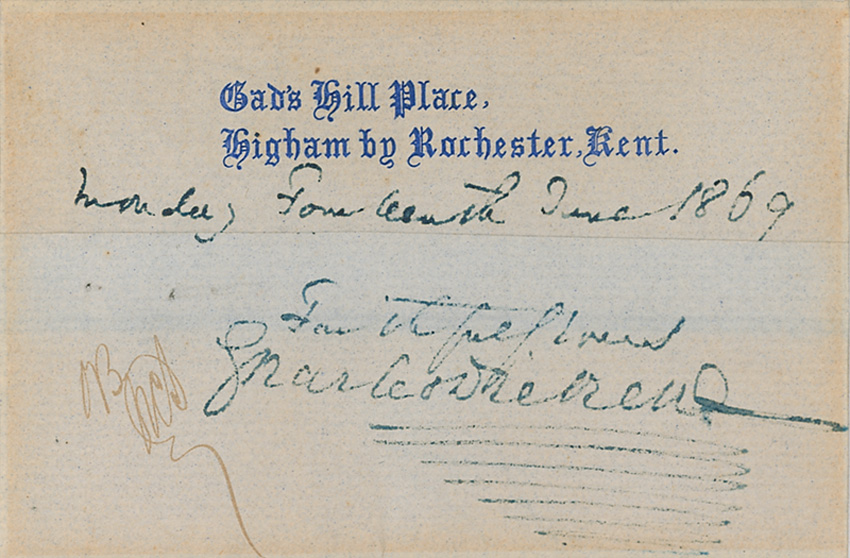 Gad's Hill Place,
Higham by Rochester, Kent.
Monday Fourteenth June 1869
Faithfully Yours
Charles Dickens